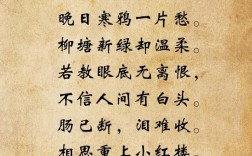 晚日寒鸦一片愁。
柳塘新绿却温柔。
若教眼底无离恨，
不信人间有白头。
肠已断，泪难收。
相思重上小红楼。